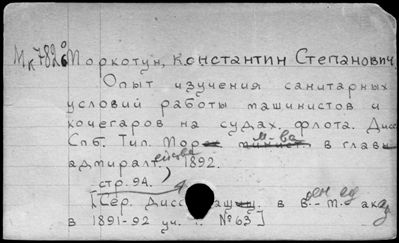 Мк7826 Моркотун, Константин Степанович.
Опыт изучения санитарных
условий работы машинистов и
кочегаров на судах флота. Дисс.
Спб. Тип. Мор м-ва в главн
адмиралт. 1892.
стр. 94.
[Сер. Дисс в в.-м. акад
в 1891-92 уч. г. №63]